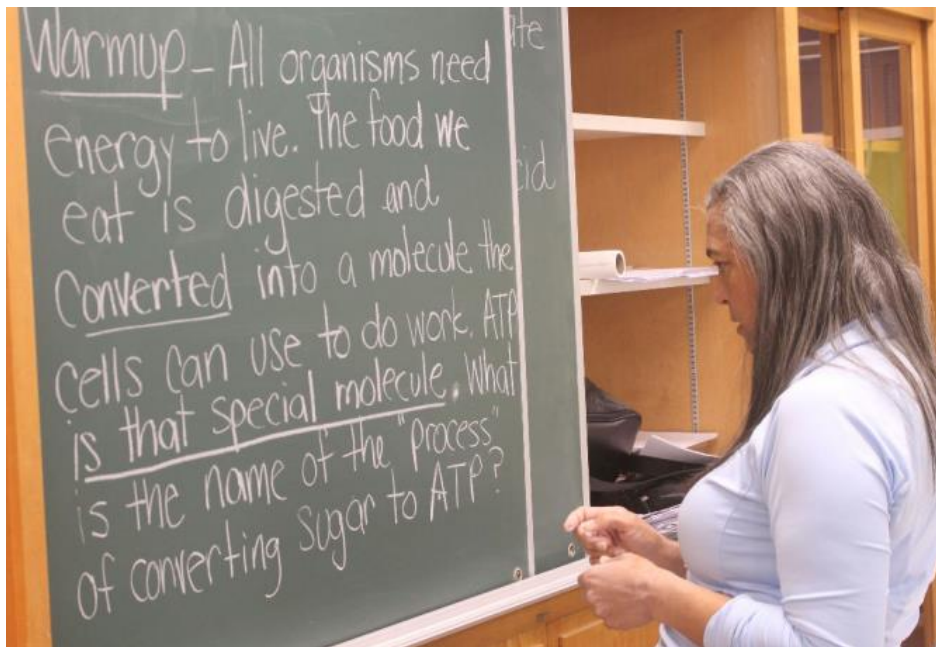 Warmup - All organisms need
energy to live. The food we
eat is digested and
converted into a molecule the
cells can use to do work. ATP
is that special molecule. What
is the name of the "process"
is the name of converting sugar to ATP?